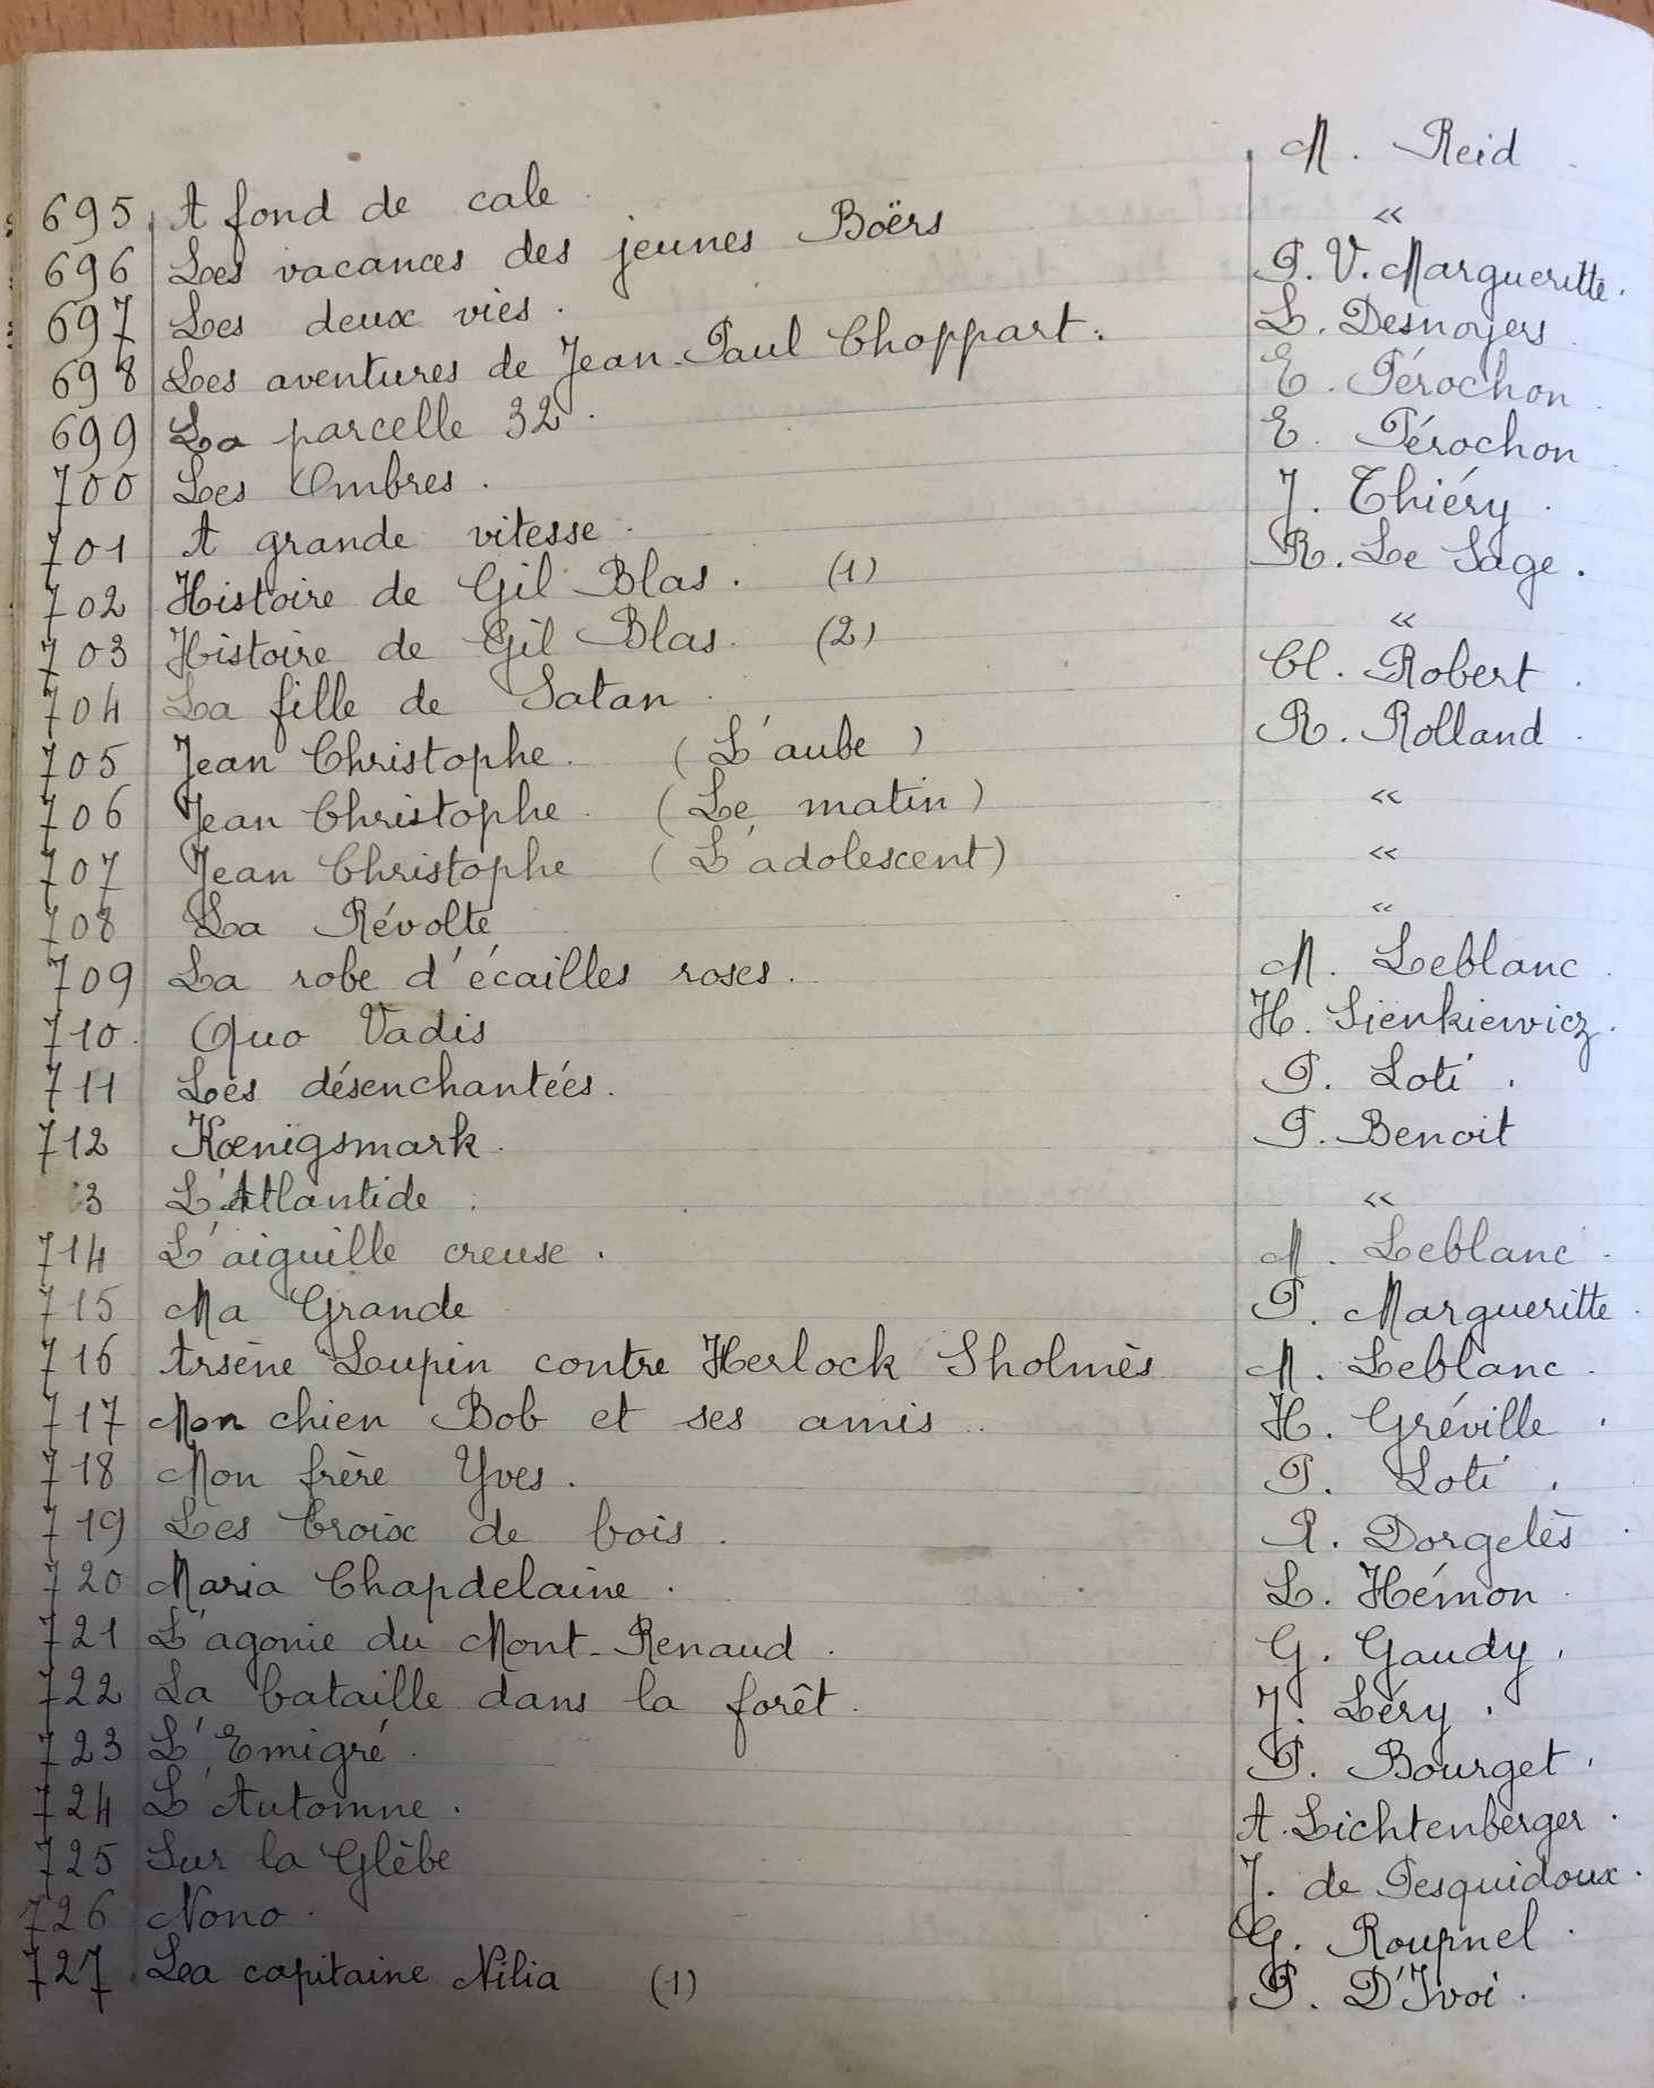 695 A fond de cale. M. Reid
696 Les vacances des jeunes Boërs «
697 Les deux vies. P. V. Margueritte.
698 Les aventures de Jean-Paul Choppart. L. Desnoyers
699 La parcelle 32. E. Pérochon.
700 Les Ombres. E. Pérochon
701 A grande vitesse. J. Thiéry.
702 Histoire de Gil Blas. (1) R. Le Sage.
703 Histoire de Gil Blas. (2) «
704 La fille de Satan. Cl. Robert.
705 Jean Christophe. (L'aube) R. Rolland.
706 Jean Christophe. (Le matin) «
707 Jean Christophe (L'adolescent) «
708 La Révolte «
709 La robe d'écailles roses. M. Leblanc.
710. Quo Vadis H. Sienkiewicz.
711 Les désenchantées. P. Loti.
712 Kœnigsmark. P. Benoit
3 L'Atlantide. «
714 L'aiguille creuse. M. Leblanc.
715 Ma Grande P. Margueritte.
716 Arsène Lupin contre Herlock Sholmès M. Leblanc.
717 Mon chien Bob et ses amis.. H. Gréville.
718 Mon frère Yves. P. Loti.
719 Les Croix de bois. R. Dorgelès.
720 Maria Chapdelaine. L. Hémon.
721 L'agonie du Mont-Renaud. G. Gaudy.
722 La bataille dans la forêt. J. Léry.
723 L'Emigré. P. Bourget.
724 L'Automne. A. Lichtenberger.
725 Sur la Glèbe J. de Pesquidoux.
726 Nono. G. Roupnel.
727 La capitaine Nilia (1) P. D'Ivoi.